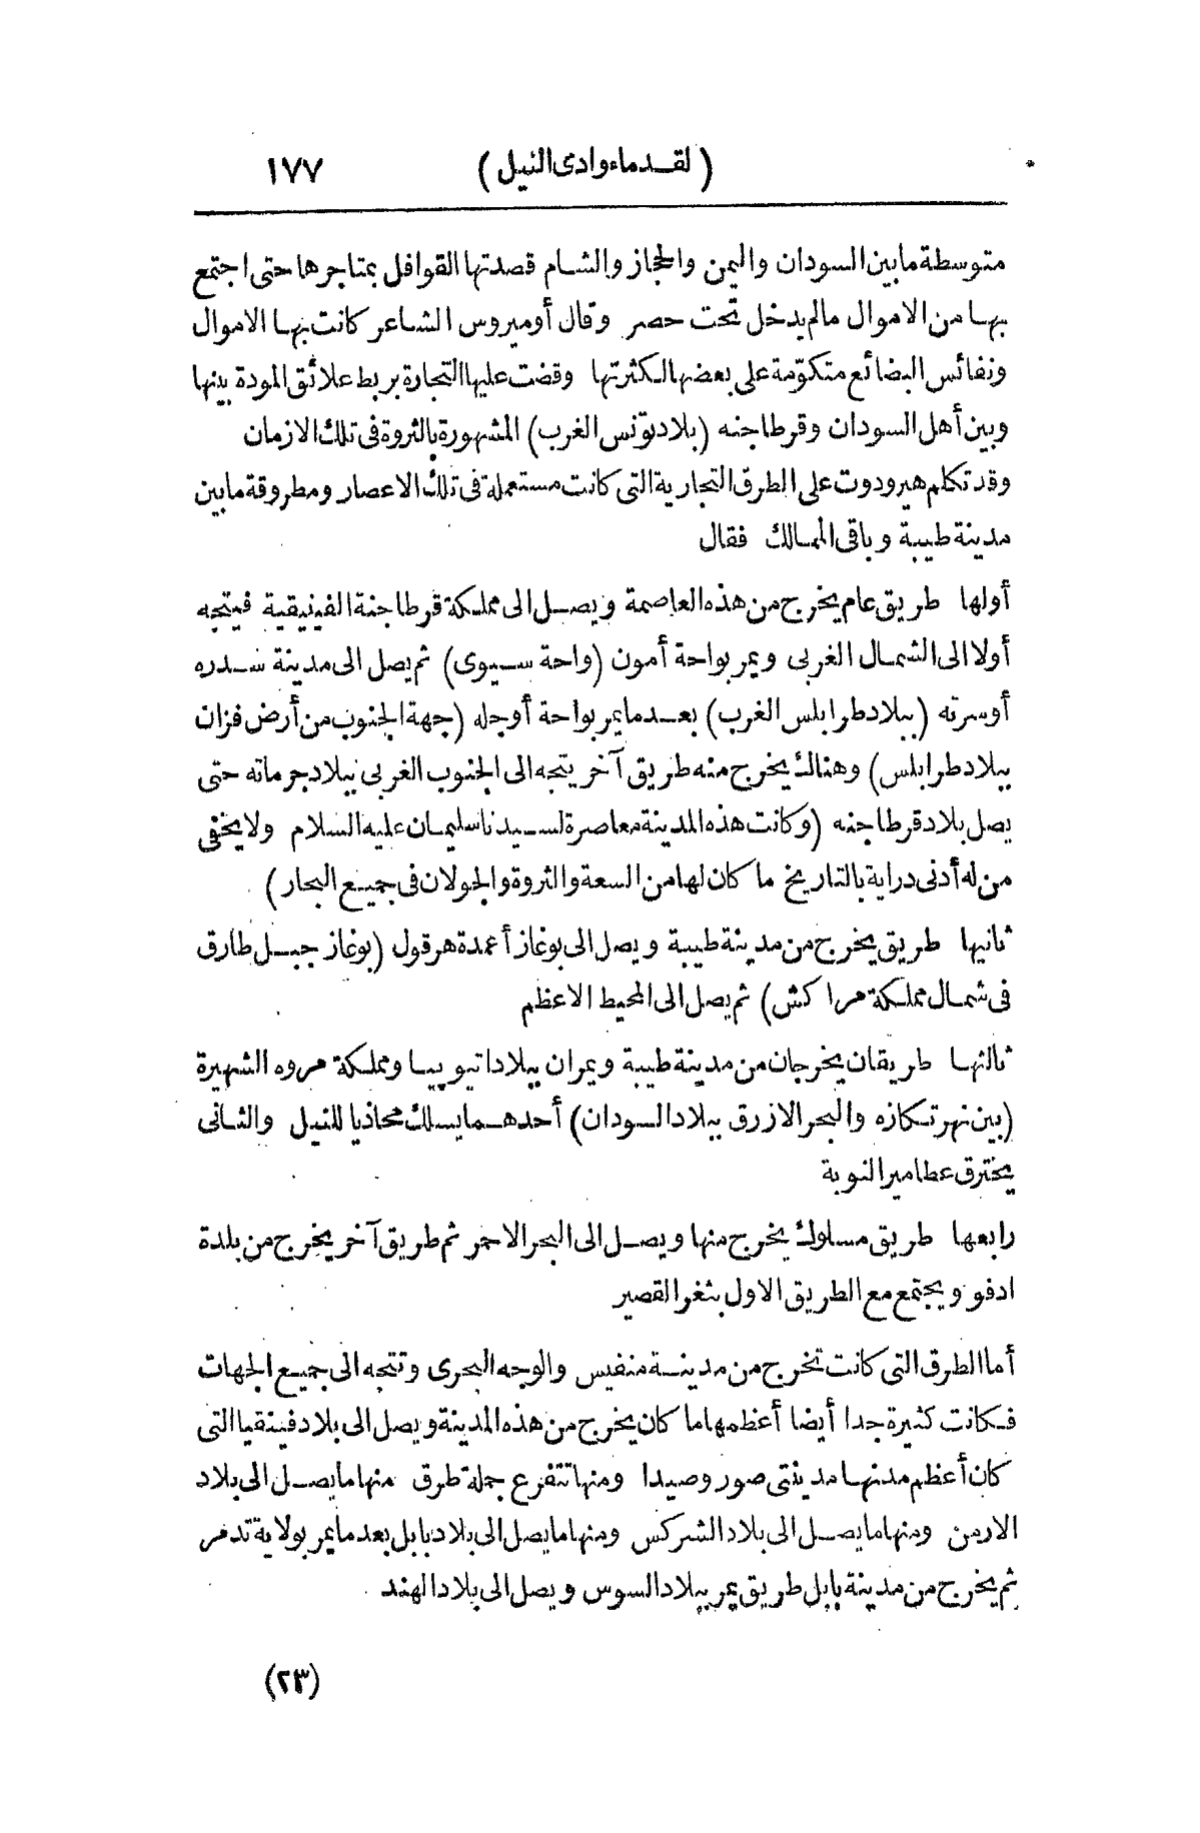 (لقدماء وادى النيل) ١٧٧
متوسطة مابين السودان واليمن والحجاز والشام قصدتها القوافل بمتاجرها حتى اجتمع
بها من الاموال مالم يدخل تحت حصر وقال أوميروس الشاعر كانت بها الاموال
ونفائس البضائع متكوّمة على بعضها لكثرتها وقضت عليها التجارة بربط علائق المودة بينها
وبين أهل السودان وقرطاجنه (بلاد تونس الغرب) المشهورة بالثروة فى تلك الازمان
وقد تكلم هيرودوت على الطرق التجارية التى كانت مستعملة فى تلك الاعصار ومطروقة مابين
مدينة طيبة وباقى الممالك فقال
أولها طريق عام يخرج من هذه العاصمة ويصل الى مملكة قرطاجنة الفينيقية فيتجه
أولا الى الشمال الغربى ويمر بواحة أمون (واحة سيوى) ثم يصل الى مدينة سدره
أوسرته (ببلاد طرابلس الغرب) بعد مايمر بواحة أوجله (جهة الجنوب من أرض فزان
ببلاد طرابلس) وهنالك يخرج منه طريق آخر يتجه الى الجنوب الغربى ببلاد جرماته حتى
يصل بلاد قرطاجنه (وكانت هذه المدينة معاصرة لسيدنا سليمان عليه السلام ولا يخفى
من له أدنى دراية بالتاريخ ما كان لها من السعة والثروة والجولان فى جميع البحار)
ثانيها طريق يخرج من مدينة طيبة ويصل الى بوغاز أعمدة هرقول (بوغاز جبل طارق
فى شمال مملكة مراكش) ثم يصل الى المحيط الاعظم
ثالثها طريقان يخرجان من مدينة طيبة ويمران ببلاد اتيوبيا ومملكة مروه الشهيرة
(بين نهر تكازه والبحر الازرق ببلاد السودان) أحدهما يسلك محاذيا للنيل والثانى
يخترق عطامير النوبة
رابعها طريق مسلوك يخرج منها ويصل الى البحر الاحمر ثم طريق آخر يخرج من بلدة
ادفو ويجتمع مع الطريق الاول بثغر القصير
أما الطرق التى كانت تخرج من مدينة منفيس والوجه البحرى وتتجه الى جميع الجهات
فكانت كثيرة جدا أيضا أعظمها ما كان يخرج من هذه المدينة ويصل الى بلاد فينقيا التى
كان أعظم مدنها مدينتى صور وصيدا ومنها تتفرع جملة طرق منها مايصل الى بلاد
الارمن ومنها مايصل الى بلاد الشركس ومنها مايصل الى بلاد بابل بعد مايمر بولاية تدمر
ثم يخرج من مدينة بابل طريق يمر ببلاد السوس ويصل الى بلاد الهند
(٢٣)